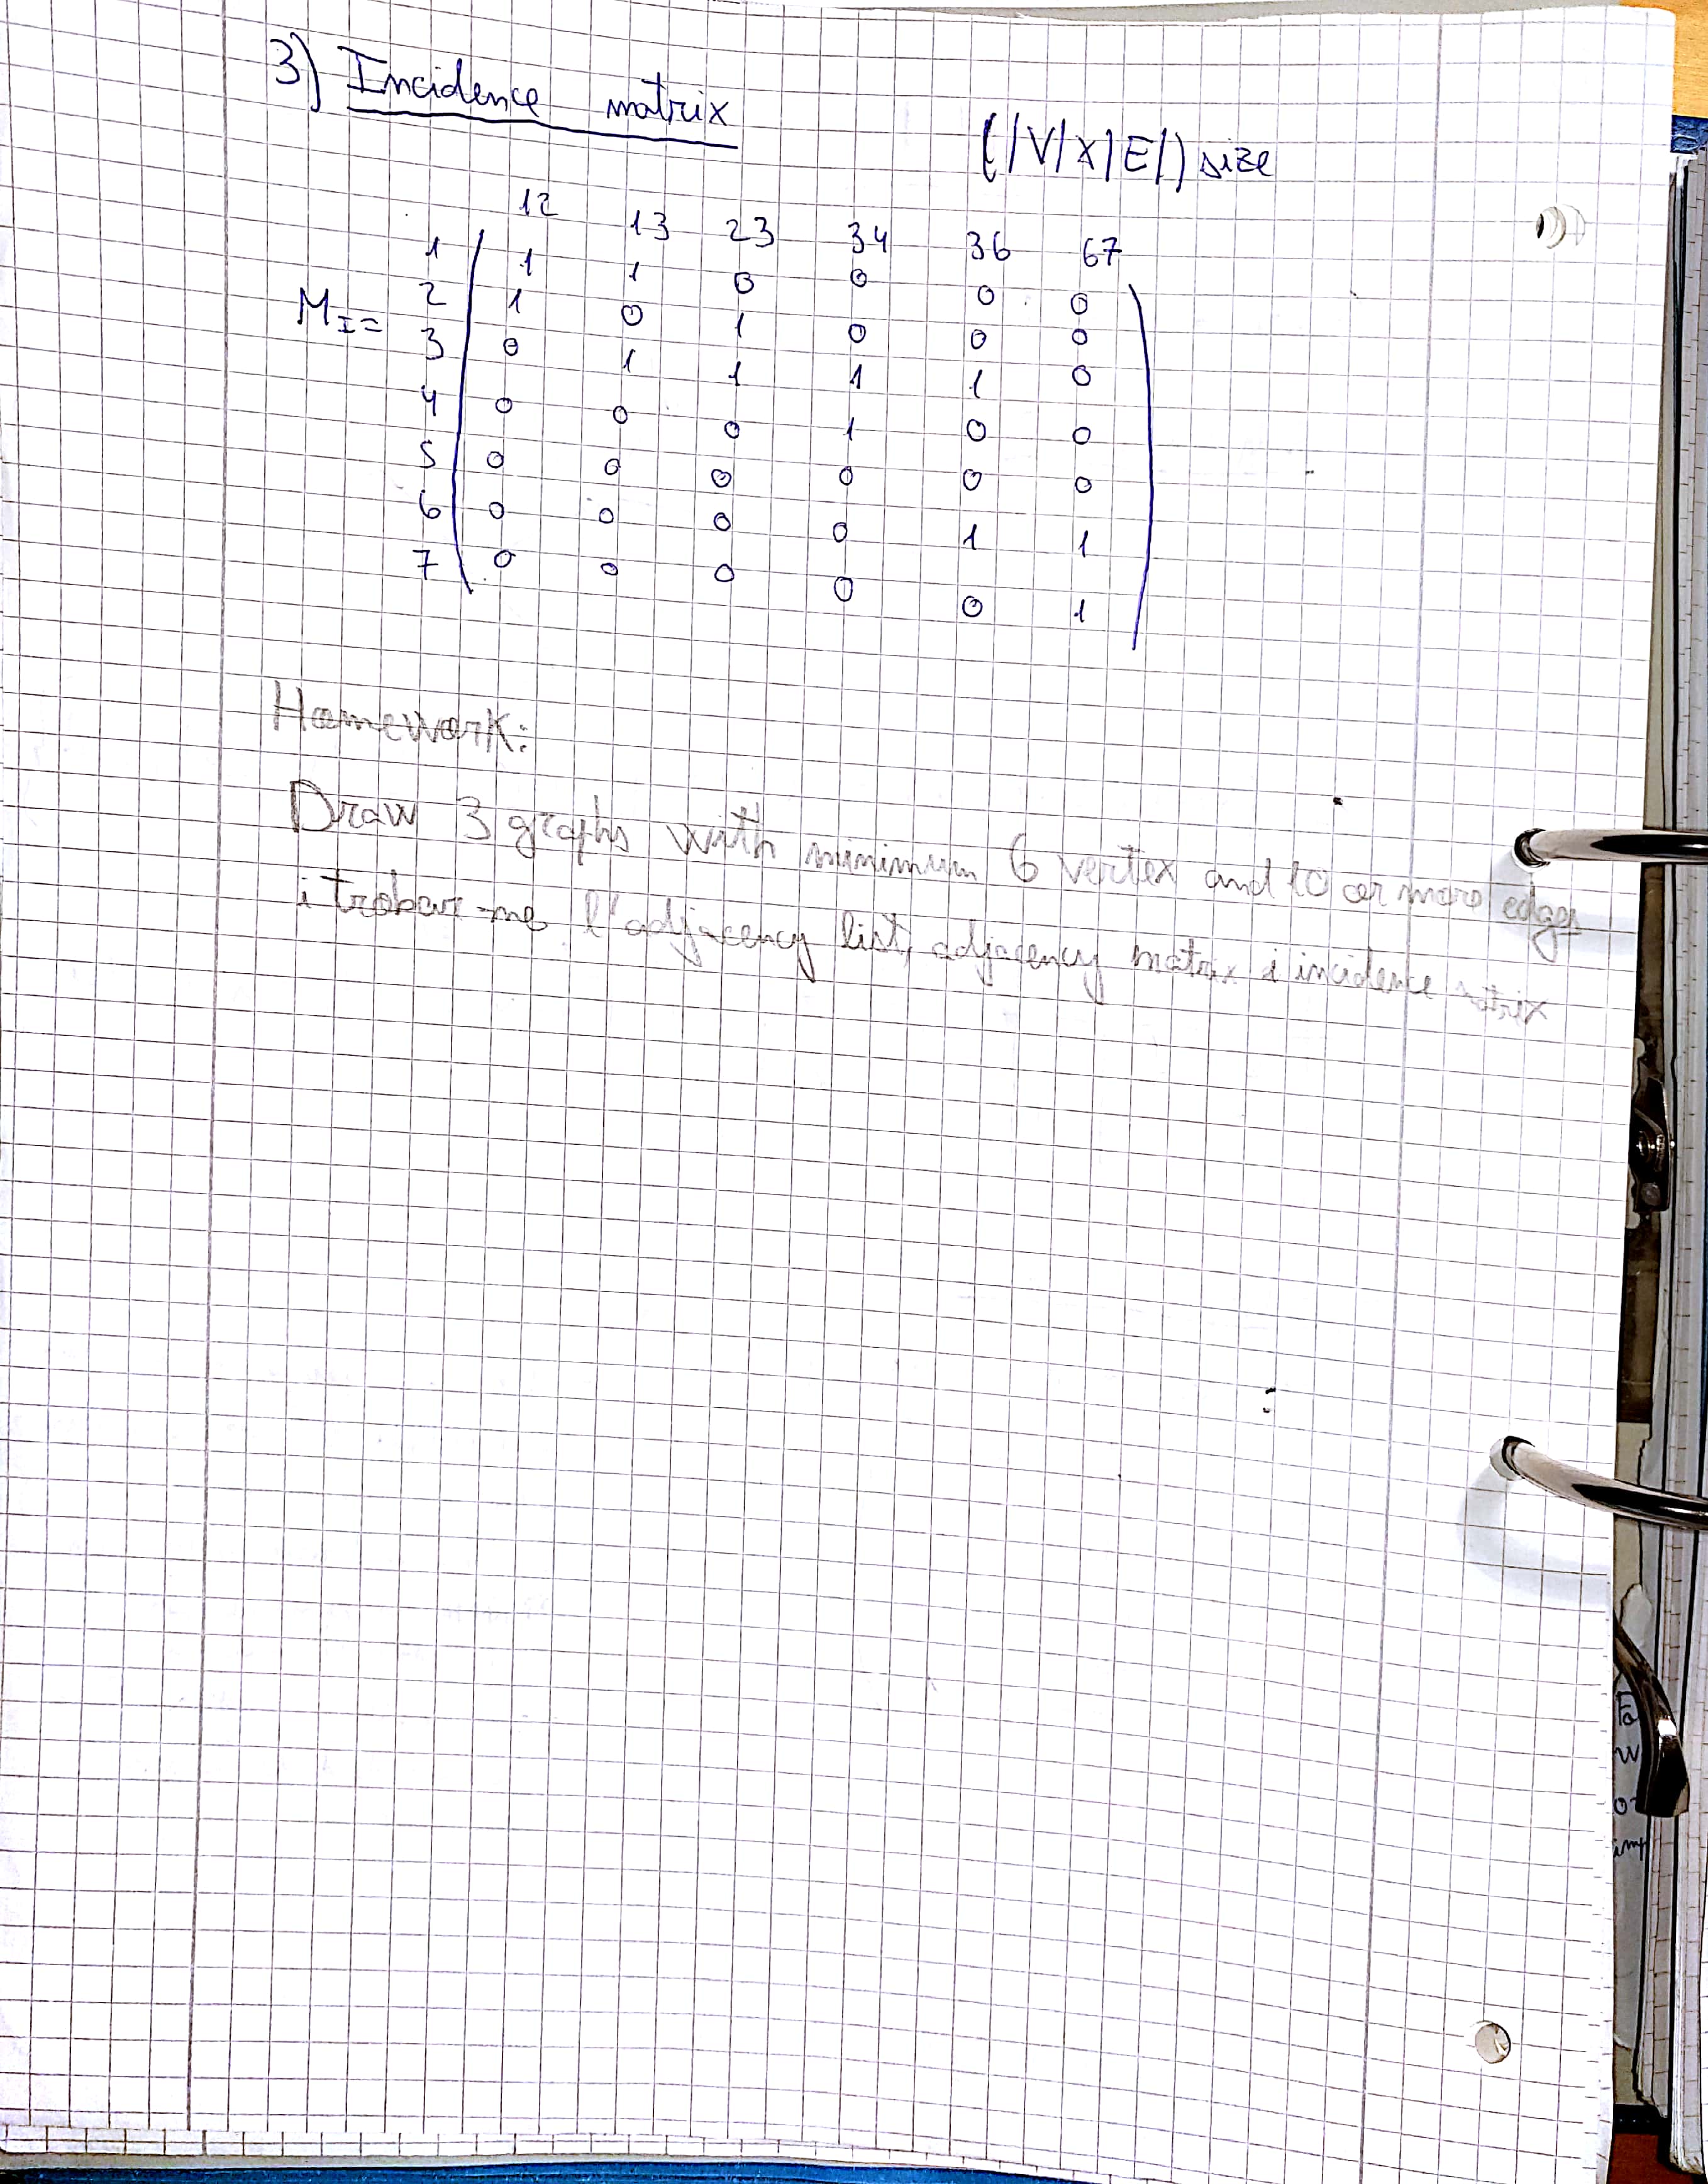 3) Incidence matrix
(|V|x|E|) size
12 13 23 34 36 67
1 1 1 0 0 0 0
2 1 0 1 0 0 0
M_I =
3 0 1 1 1 1 0
4 0 0 0 1 0 0
5 0 0 0 0 0 0
6 0 0 0 0 1 1
7 0 0 0 0 0 1
Homework:
Draw 3 graphs with minimum 6 vertex and 10 or more edges
i trobar-ne l'adjacency list, adjacency matrix i incidence matrix
Fa
w
imp